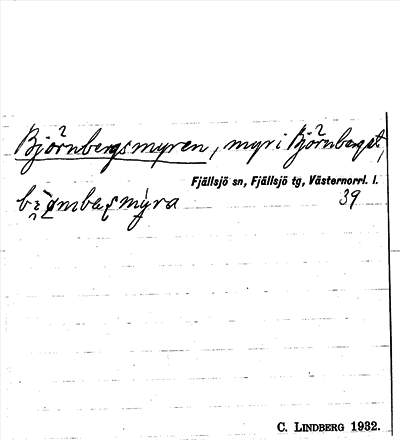 Björnbergsmyren, myr i Björnberget,
Fjällsjö sn, Fjällsjö tg, Västernorrl. l.
39
C. LINDBERG 1932.